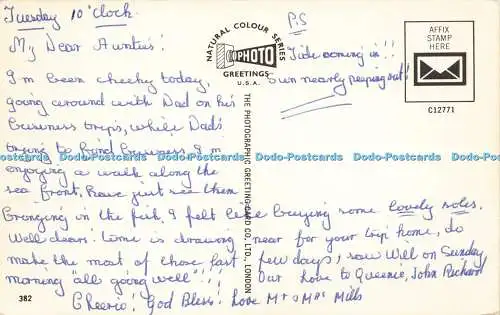 Tuesday 10 o'Clock
My Dear Aunties!
I'm been cheeky today,
going around with Dad on his
business trips, while Dad's
trying to find business I'm
enjoying a walk along the
sea front, have just see them
bringing in the fish, I felt like buying some lovely soles.
Well dears! time is drawing near for your trip home, do
make the most of those last few days, saw Will on Sunday
morning "all going well"!!! Our Love to Queenie, John Richard
Cheerio! God Bless! Love Mr & Mrs Mills
P.S
Tide coming in!!
Sun nearly peeping out!
NATURAL COLOUR SERIES
PHOTO
GREETINGS
U.S.A.
THE PHOTOGRAPHIC GREETING CARD CO., LTD., LONDON
AFFIX
STAMP
HERE
C12771
382
Dodo-Postcards Dodo-Postcards Dodo-Postcards Dodo-Postcards Dodo-Postcards Dodo-Postcards